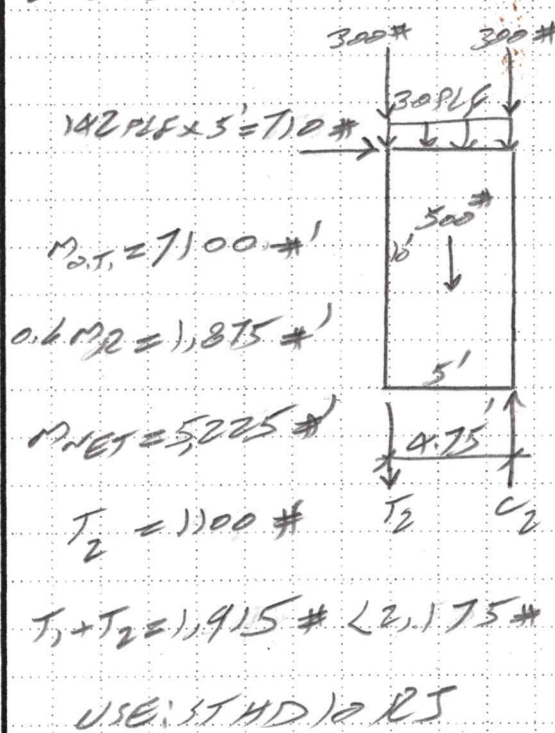 300# 300#
30PLF
142 PLF x 5' = 710#
500#
M O.T. = 7100 #'
10'
0.6 MR = 1,875 #'
5'
MNET = 5,225 #'
4.75'
T2 C2
T2 = 1100 #
T1 + T2 = 1,915 # < 2,175 #
USE: STHD10RJ